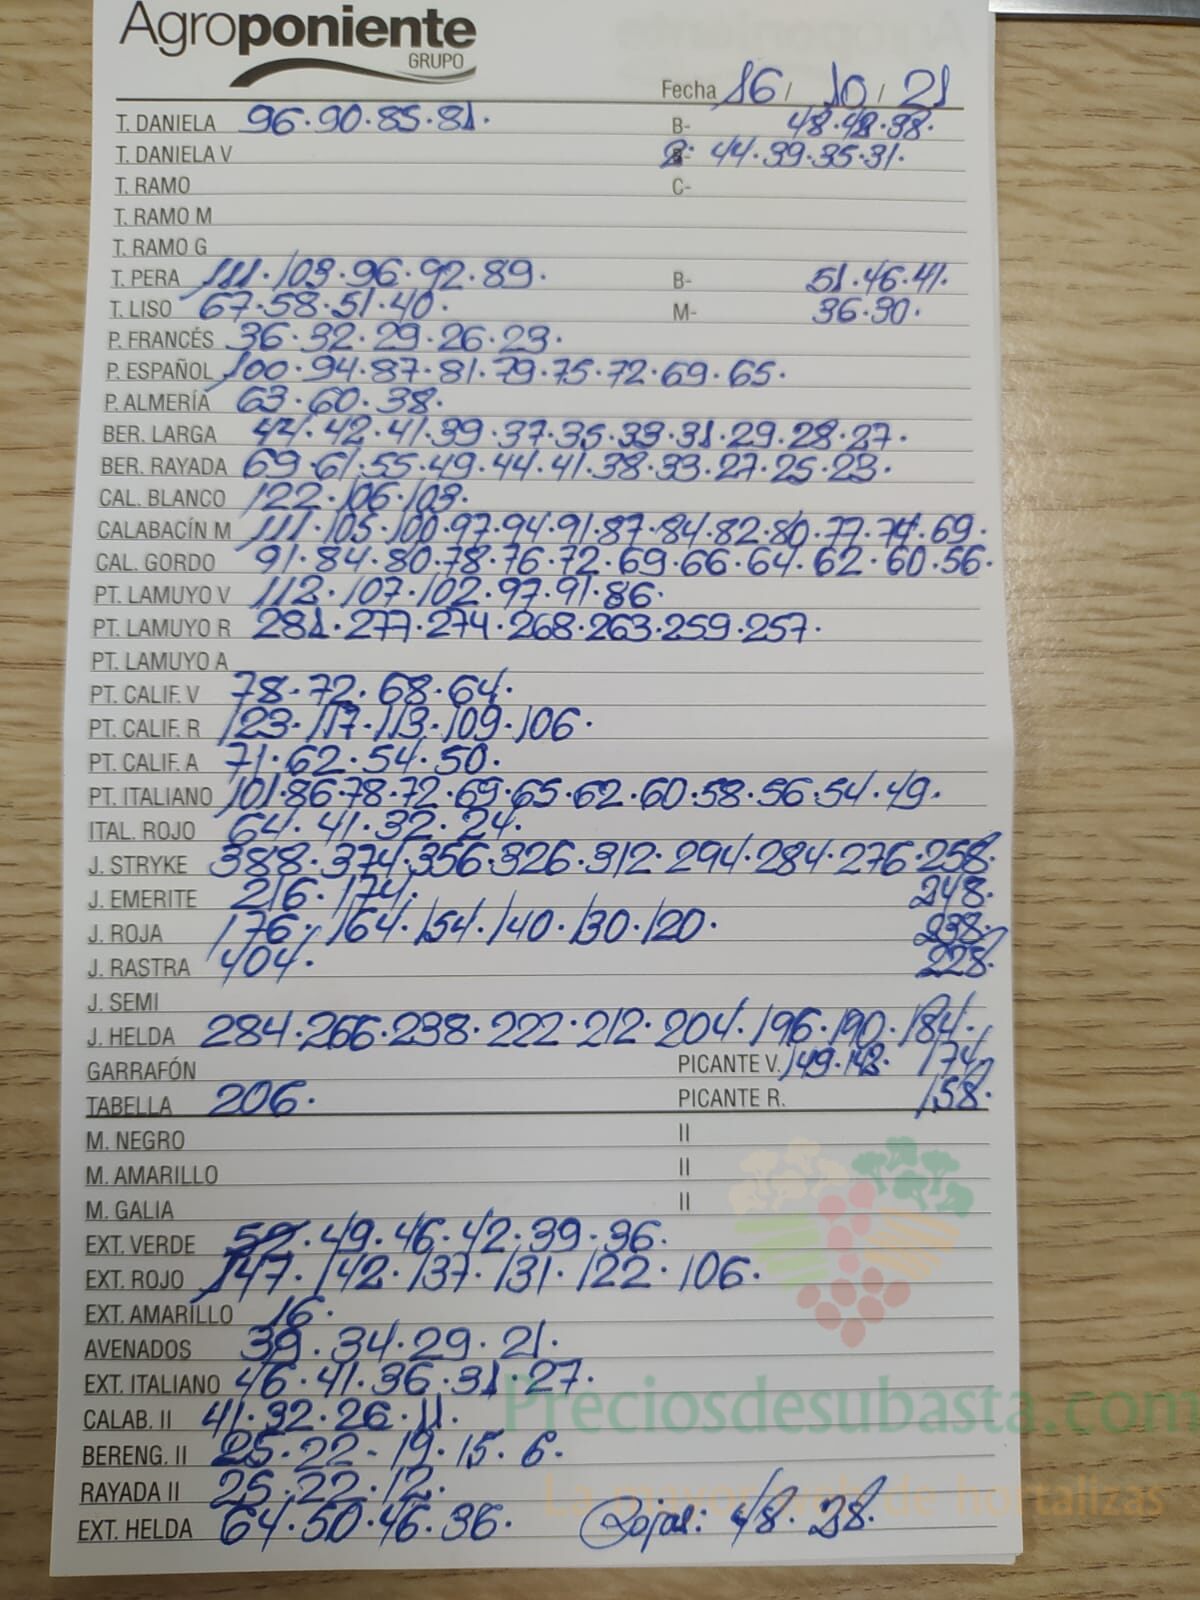 Agroponiente
GRUPO
Fecha 16 / 10 / 21
T. DANIELA 96·90·85·81· B- 48·42·38·
T. DANIELA V 2: 44·39·35·31·
T. RAMO C-
T. RAMO M
T. RAMO G
T. PERA 111·103·96·92·89· B- 51·46·41·
T. LISO 67·58·51·40· M- 36·30·
P. FRANCÉS 36·32·29·26·23·
P. ESPAÑOL 100·94·87·81·79·75·72·69·65·
P. ALMERÍA 63·60·38·
BER. LARGA 44·42·41·39·37·35·33·31·29·28·27·
BER. RAYADA 69·61·55·49·44·41·38·33·27·25·23·
CAL. BLANCO 122·106·103·
CALABACÍN M 111·105·100·97·94·91·87·84·82·80·77·74·69·
CAL. GORDO 91·84·80·78·76·72·69·66·64·62·60·56·
PT. LAMUYO V 112·107·102·97·91·86·
PT. LAMUYO R 281·277·274·268·263·259·257·
PT. LAMUYO A
PT. CALIF. V 78·72·68·64·
PT. CALIF. R 123·117·113·109·106·
PT. CALIF. A 71·62·54·50·
PT. ITALIANO 101·86·78·72·69·65·62·60·58·56·54·49·
ITAL. ROJO 64·41·32·24·
J. STRYKE 388·374·356·326·312·294·284·276·258·
J. EMERITE 216·174· 248·
J. ROJA 176·164·154·140·130·120· 238·
J. RASTRA 404· 228·
J. SEMI
J. HELDA 284·266·238·222·212·204·196·190·184·
GARRAFÓN PICANTE V. 149·148· 174·
TABELLA 206· PICANTE R. 158·
M. NEGRO II
M. AMARILLO II
M. GALIA II
EXT. VERDE 52·49·46·42·39·36·
EXT. ROJO 147·142·137·131·122·106·
EXT. AMARILLO 16·
AVENADOS 39·34·29·21·
EXT. ITALIANO 46·41·36·31·27·
CALAB. II 41·32·26·11·
Preciosdesubasta.com
BERENG. II 25·22·19·15·6·
RAYADA II 25·22·12·
La mayor web de hortalizas
EXT. HELDA 64·50·46·36· Rojas: 48·28·